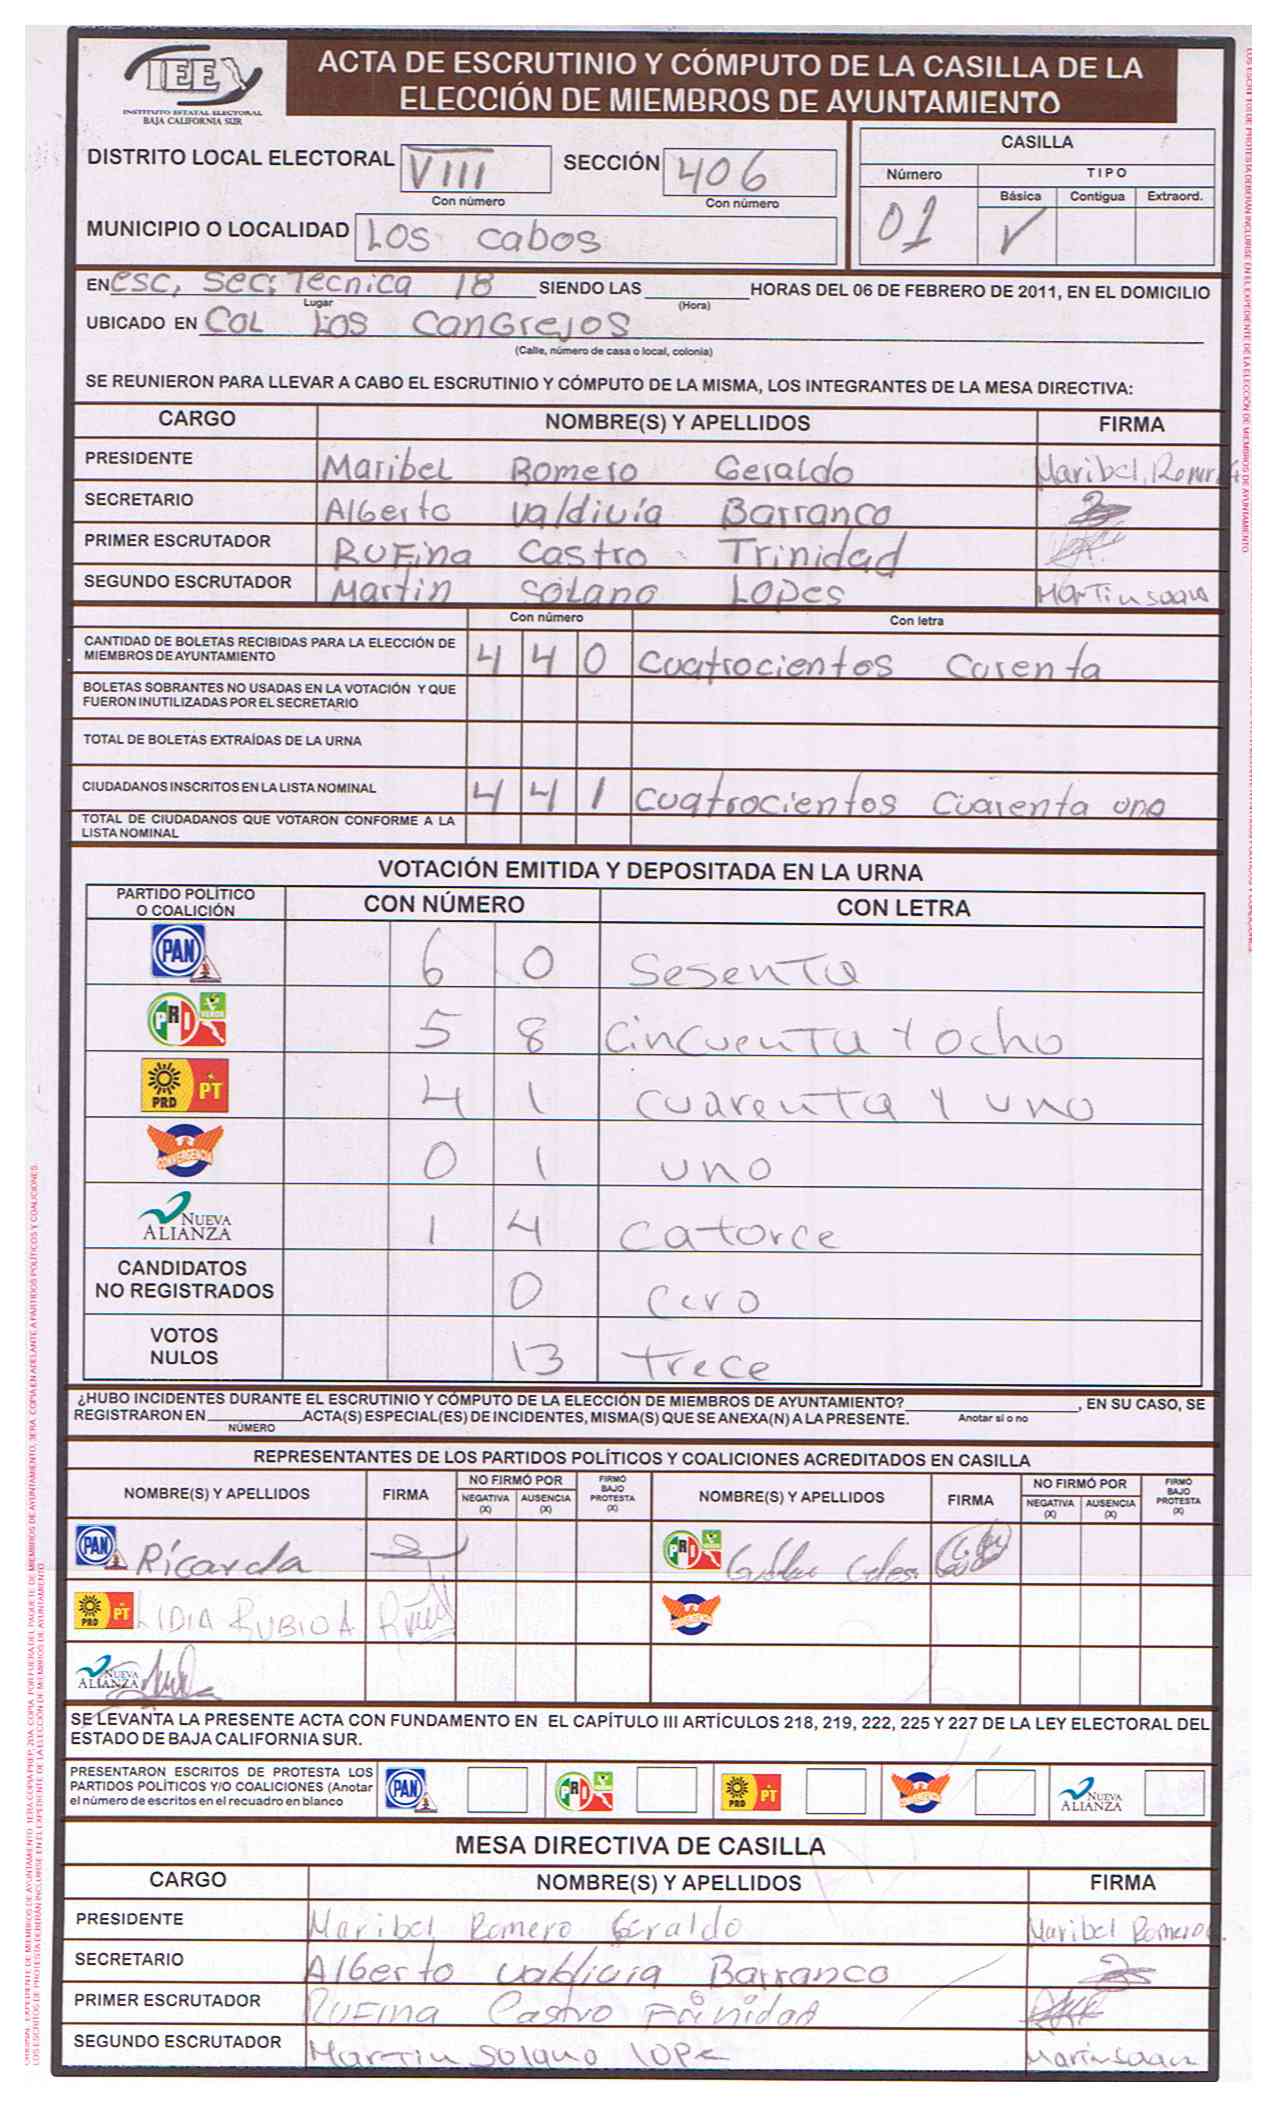 IEE
INSTITUTO ESTATAL ELECTORAL
BAJA CALIFORNIA SUR
ACTA DE ESCRUTINIO Y CÓMPUTO DE LA CASILLA DE LA
ELECCIÓN DE MIEMBROS DE AYUNTAMIENTO
DISTRITO LOCAL ELECTORAL VIII SECCIÓN 406
Con número Con número
MUNICIPIO O LOCALIDAD Los cabos
CASILLA
Número TIPO
Básica Contigua Extraord.
01 ✓
EN esc, sec: Tecnica 18 SIENDO LAS HORAS DEL 06 DE FEBRERO DE 2011, EN EL DOMICILIO
Lugar (Hora)
UBICADO EN COL LOS CanGrejos
(Calle, número de casa o local, colonia)
SE REUNIERON PARA LLEVAR A CABO EL ESCRUTINIO Y CÓMPUTO DE LA MISMA, LOS INTEGRANTES DE LA MESA DIRECTIVA:
CARGO NOMBRE(S) Y APELLIDOS FIRMA
PRESIDENTE Maribel Romero Geraldo Maribel
SECRETARIO Alberto Valdivia Barranco
PRIMER ESCRUTADOR RUFina Castro Trinidad
SEGUNDO ESCRUTADOR Martin SOLano LOPes
Con número Con letra
CANTIDAD DE BOLETAS RECIBIDAS PARA LA ELECCIÓN DE
MIEMBROS DE AYUNTAMIENTO 4 4 0 Cuatrocientos Curenta
BOLETAS SOBRANTES NO USADAS EN LA VOTACIÓN Y QUE
FUERON INUTILIZADAS POR EL SECRETARIO
TOTAL DE BOLETAS EXTRAÍDAS DE LA URNA
CIUDADANOS INSCRITOS EN LA LISTA NOMINAL 4 4 1 Cuatrocientos Cuarenta uno
TOTAL DE CIUDADANOS QUE VOTARON CONFORME A LA
LISTA NOMINAL
VOTACIÓN EMITIDA Y DEPOSITADA EN LA URNA
PARTIDO POLÍTICO
O COALICIÓN CON NÚMERO CON LETRA
PAN 6 0 Sesenta
PRI VERDE 5 8 Cincuenta Y ocho
PRD PT 4 1 Cuarenta Y uno
CONVERGENCIA 0 1 uno
NUEVA ALIANZA 1 4 Catorce
CANDIDATOS
NO REGISTRADOS 0 Cero
VOTOS
NULOS 13 trece
¿HUBO INCIDENTES DURANTE EL ESCRUTINIO Y CÓMPUTO DE LA ELECCIÓN DE MIEMBROS DE AYUNTAMIENTO? , EN SU CASO, SE
REGISTRARON EN ACTA(S) ESPECIAL(ES) DE INCIDENTES, MISMA(S) QUE SE ANEXA(N) A LA PRESENTE. Anotar si o no
NÚMERO
REPRESENTANTES DE LOS PARTIDOS POLÍTICOS Y COALICIONES ACREDITADOS EN CASILLA
NOMBRE(S) Y APELLIDOS FIRMA NO FIRMÓ POR NEGATIVA (X) AUSENCIA (X) FIRMÓ BAJO PROTESTA (X) NOMBRE(S) Y APELLIDOS FIRMA NO FIRMÓ POR NEGATIVA (X) AUSENCIA (X) FIRMÓ BAJO PROTESTA (X)
PAN Ricarda PRI
PRD PT LIDIA RUBIO A CONVERGENCIA
NUEVA ALIANZA
SE LEVANTA LA PRESENTE ACTA CON FUNDAMENTO EN EL CAPÍTULO III ARTÍCULOS 218, 219, 222, 225 Y 227 DE LA LEY ELECTORAL DEL
ESTADO DE BAJA CALIFORNIA SUR.
PRESENTARON ESCRITOS DE PROTESTA LOS
PARTIDOS POLÍTICOS Y/O COALICIONES (Anotar
el número de escritos en el recuadro en blanco
PAN PRI PRD PT CONVERGENCIA NUEVA ALIANZA
MESA DIRECTIVA DE CASILLA
CARGO NOMBRE(S) Y APELLIDOS FIRMA
PRESIDENTE Maribel Romero Geraldo Maribel Romero
SECRETARIO Alberto Valdivia Barranco
PRIMER ESCRUTADOR RUFINA Castro Trinidad
SEGUNDO ESCRUTADOR Martin Solano